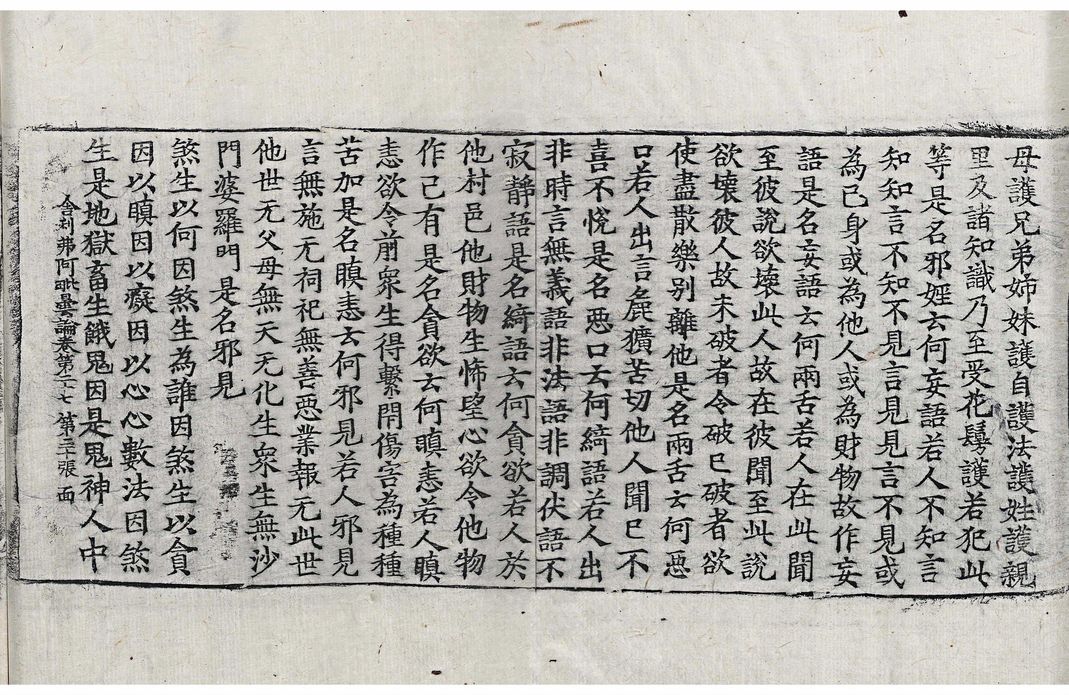 母護兄弟姉妹護自護法護姓護親
里及諸知識乃至受花鬘護若犯此
等是名邪婬云何妄語若人不知言
知知言不知不見言見見言不見或
為己身或為他人或為財物故作妄
語是名妄語云何兩舌若人在此聞
至彼說欲壊此人故在彼聞至此說
欲壊彼人故未破者令破已破者欲
使盡散樂别離他是名兩舌云何惡
口若人出言麁獷苦切他人聞已不
喜不悅是名惡口云何綺語若人出
非時言無義語非法語非調伏語不
寂靜語是名綺語云何貪欲若人於
他村邑他財物生悕望心欲令他物
作己有是名貪欲云何瞋恚若人瞋
恚欲令前衆生得繫閇傷害為種種
苦加是名瞋恚云何邪見若人邪見
言無施无祠祀無善惡業報无此世
他世无父母無天无化生衆生無沙
門婆羅門是名邪見
煞生以何因煞生為誰因煞生以貪
因以瞋因以癡因以心心數法因煞
生是地獄畜生餓鬼因是鬼神人中
舍利弗阿毗曇論卷第二十七 第二十張 面